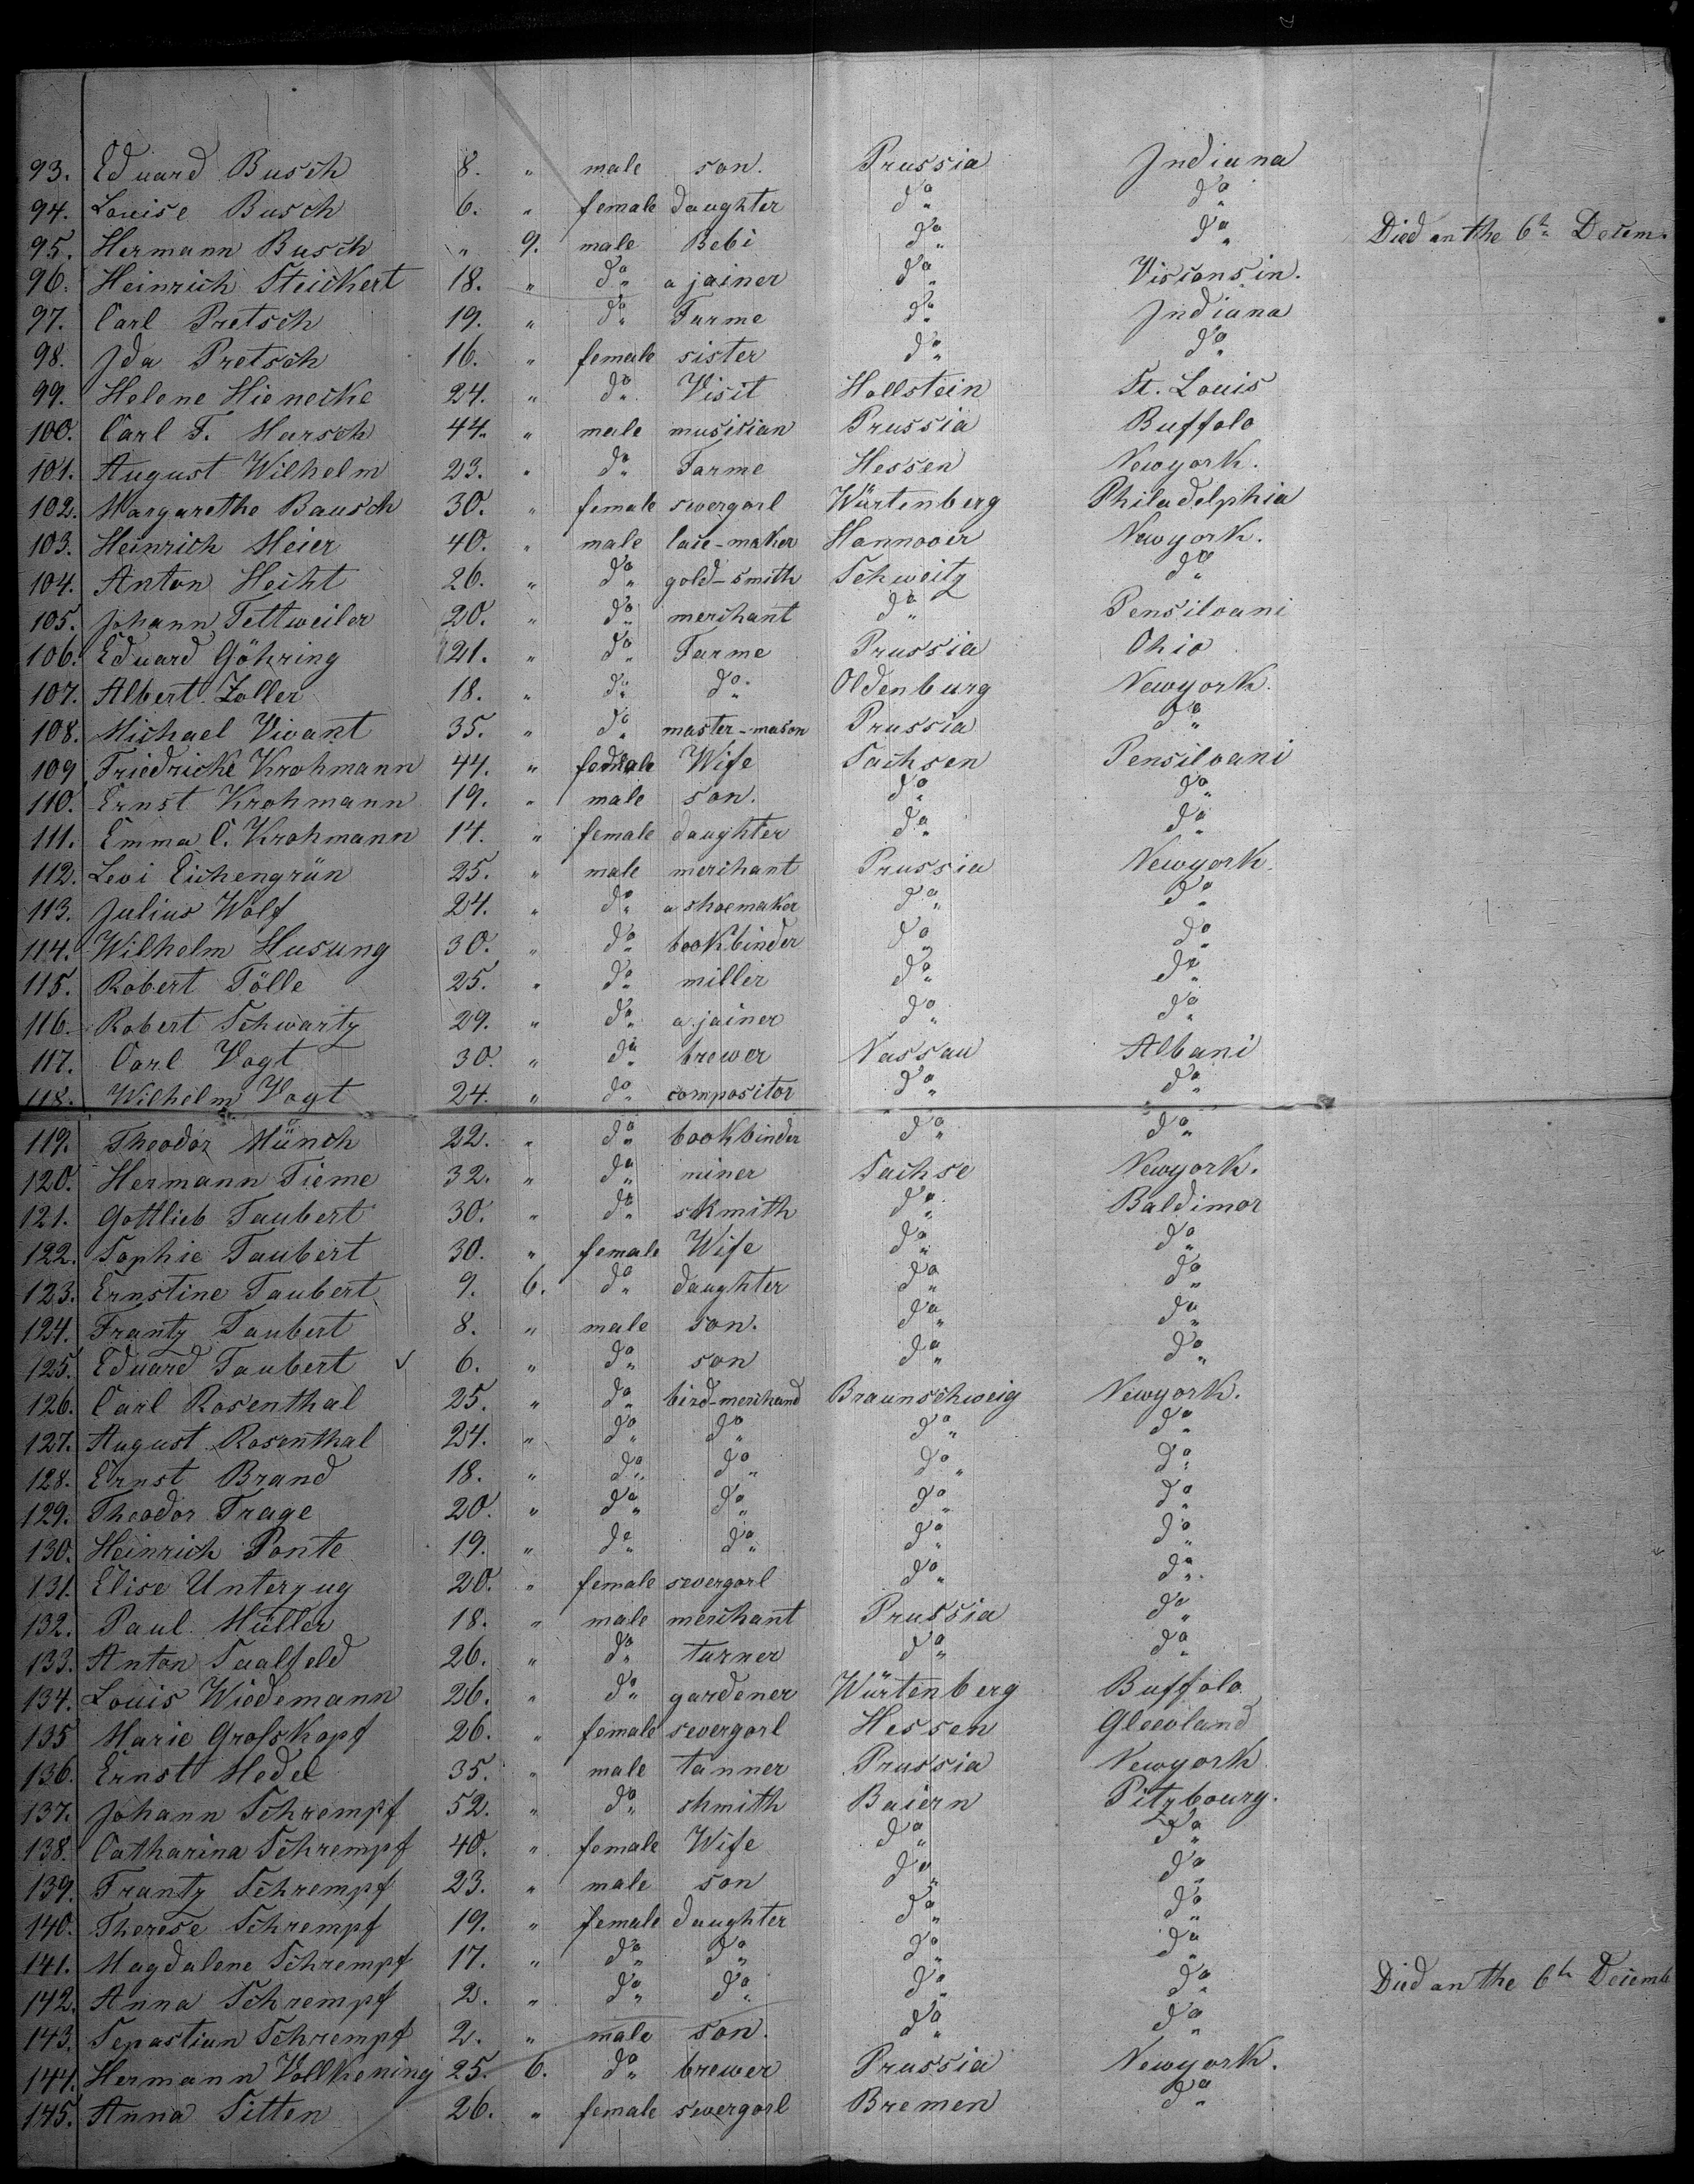 93. Eduard Busch 8. " male son. Prussia Indiana
94. Louise Busch 6. " female daughter do do
95. Hermann Busch " 9. male Bebi do do Died on the 6th Decem.
96. Heinrich Steickert 18. " do a joiner do Visconsin.
97. Carl Pretsch 19. " do Farme do Indiana
98. Ida Pretsch 16. " female sister do do
99. Helene Hienecke 24. " do Visit Hollstein St. Louis
100. Carl F. Harsch 44. " male musician Prussia Buffolo
101. August Wilhelm 23. " do Farme Hessen Newyork.
102. Margarethe Bausch 30. " female severgorl Würtenberg Philadelphia
103. Heinrich Meier 40. " male lace-maker Hannover Newyork.
104. Anton Hecht 26. " do gold-smith Schweitz do
105. Johann Tettweiler 20. " do merchant do Pensilvani
106. Eduard Göhring 21. " do Farme Prussia Ohio
107. Albert Zoller 18. " do do Oldenburg Newyork.
108. Michael Vivant 35. " do master-mason Prussia do
109 Friedricke Krohmann 44. " female Wife Sachsen Pensilvani
110. Ernst Krohmann 19. " male son. do do
111. Emma C. Krohmann 14. " female daughter do do
112. Levi Eichengrün 25. " male merchant Prussia Newyork.
113. Julius Wolf 24. " do a shoemaker do do
114. Wilhelm Husung 30. " do bookbinder do do
115. Robert Tölle 25. " do miller do do
116. Robert Schwartz 29. " do a joiner do do
117. Carl Vogt 30. " do brewer Nassau Albani
118. Wilhelm Vogt 24. " do compositor do do
119. Theodor Münch 22. " do bookbinder do do
120. Hermann Tieme 32. " do miner Sachse Newyork.
121. Gottlieb Taubert 30. " do skmith do Baldimor
122. Sophie Taubert 30. " female Wife do do
123. Ernstine Taubert 9. 6. do daughter do do
124. Frantz Taubert 8. " male son. do do
125. Eduard Taubert 6. " do son do do
126. Carl Rosenthal 25. " do bird-merchand Braunschweig Newyork.
127. August Rosenthal 24. " do do do do
128. Ernst Brand 18. " do do do do
129. Theodor Trage 20. " do do do do
130. Heinrich Ponte 19. " do do do do
131. Elise Unterzug 20. " female severgorl do do
132. Paul Müller 18. " male merchant Prussia do
133. Anton Saalfeld 26. " do turner do do
134. Louis Wiedemann 26. " do gardener Würtenberg Buffolo
135 Marie Großkopf 26. " female severgorl Hessen Gleevland
136. Ernst Hedel 35. " male tanner Prussia Newyork
137. Johann Schrempf 52. " do shmith Baiern Pitzbourg.
138. Catharina Schrempf 40. " female Wife do do
139. Frantz Schrempf 23. " male son do do
140. Therese Schrempf 19. " female daughter do do
141. Magdalene Schrempf 17. " do do do do
142. Anna Schrempf 2. " do do do do Died on the 6th Decemb
143. Sepastian Schrempf 2. " male son. do do
144. Hermann Vollkening 25. 6. do brewer Prussia Newyork.
145. Anna Sitten 26. " female severgorl Bremen do